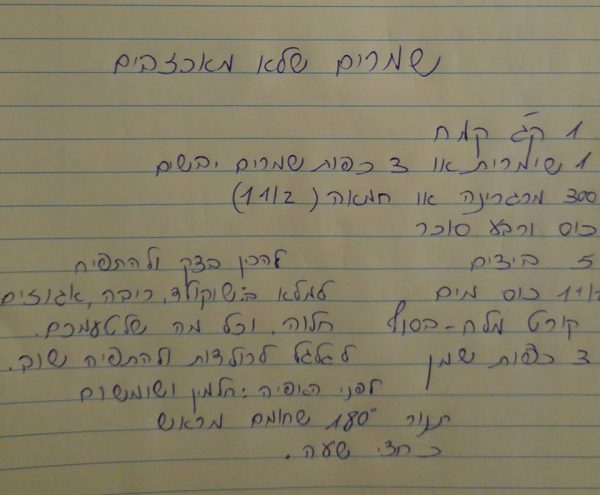 שמרים שלא מאכזבים
1 ק"ג קמח
1 שימרית או 3 כפות שמרים יבשים
300 מרגרינה או חמאה (1 1/2)
כוס ורבע סוכר
5 ביצים
1 1/2 כוס מים
קורט מלח - בסוף
3 כפות שמן
להכין בצק ולהתפיח
למלא ב:שוקולד, ריבה, אגוזים
חלוה, וכל מה שלטעמכם.
לגלגל לרולדות ולהתפיח שוב.
לפני האפיה: חלמון ושומשום
תנור 180° שחומם מראש
כ חצי שעה.